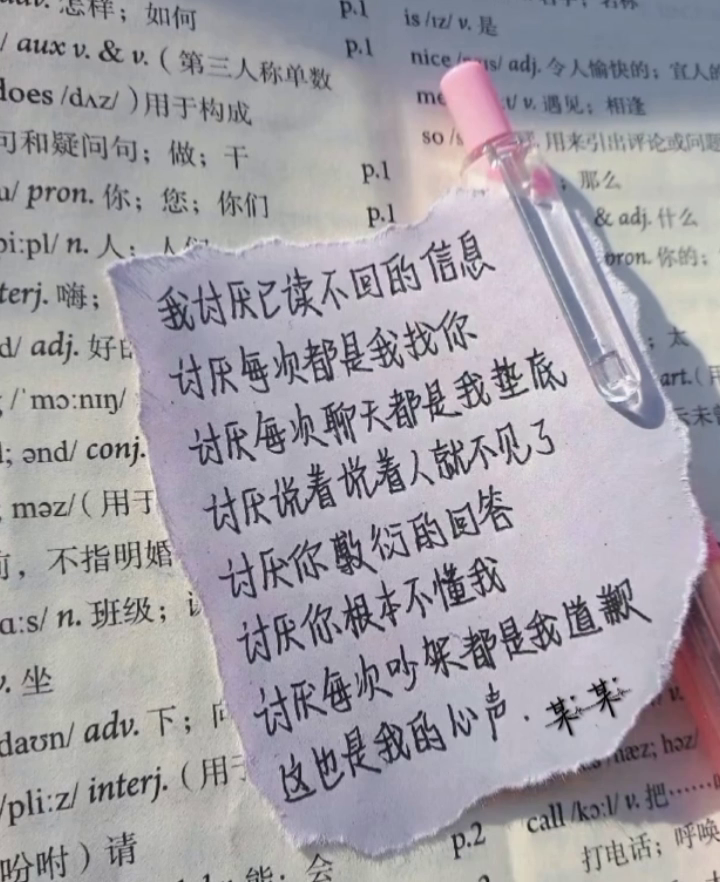 怎样；如何
p.1
/ aux v. & v.（第三人称单数
p.1
does /dʌz/ ）用于构成
可和疑问句；做；干
p.1
u/ pron. 你；您；你们
p.1
pi:pl/ n. 人；人们
terj. 嗨；
d/ adj. 好的
/ˈmɔ:nɪŋ/
; ənd/ conj.
; məz/（用于
前，不指明婚
ɑ:s/ n. 班级；
v. 坐
daʊn/ adv. 下；向
/pli:z/ interj.（用于
吩咐）请
能；会
is /ɪz/ v. 是
nice adj. 令人愉快的；宜人的
v. 遇见；相逢
so 用来引出评论或问题
；那么
& adj. 什么
pron. 你的；
；太
art.（用
call /kɔ:l/ v. 把……
打电话；呼唤
næz; həz/
p.2
我讨厌已读不回的信息
讨厌每次都是我找你
讨厌每次聊天都是我垫底
讨厌说着说着人就不见了
讨厌你敷衍的回答
讨厌你根本不懂我
讨厌每次吵架都是我道歉
这也是我的心声．某某